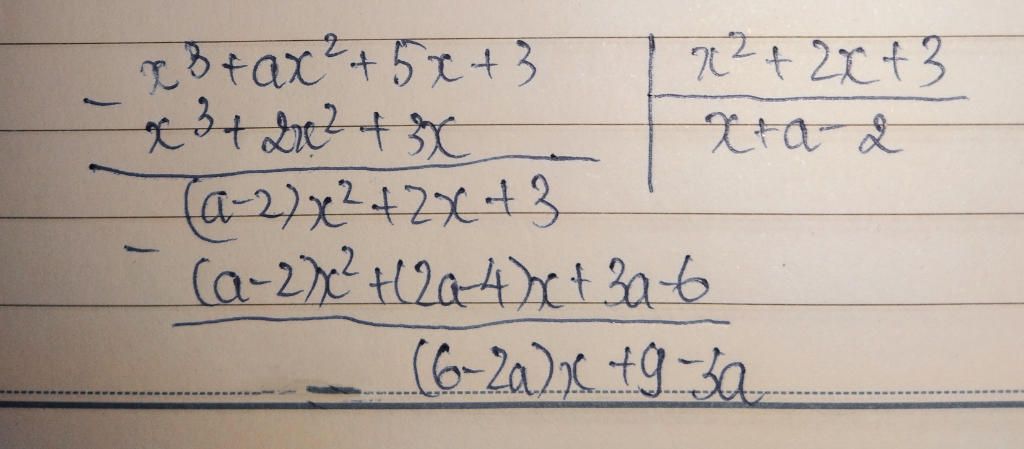 x³+ax²+5x+3 | x²+2x+3
- x³+2x²+3x | x+a-2
(a-2)x²+2x+3
- (a-2)x²+(2a-4)x+3a-6
(6-2a)x+9-3a